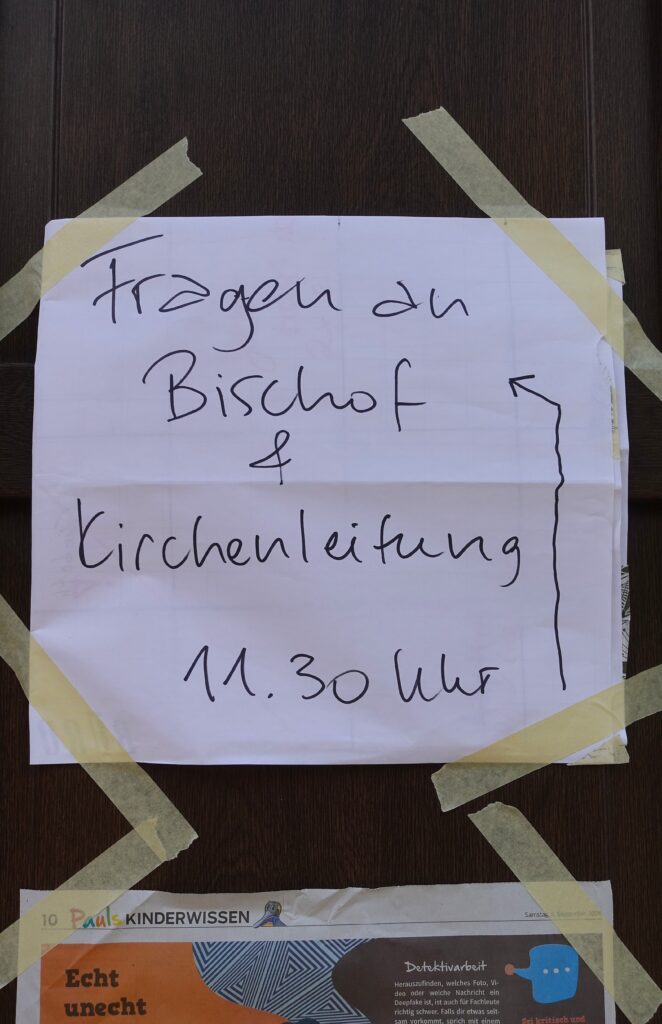 Fragen an
Bischof
&
Kirchenleitung
11.30 Uhr
10 Pauls KINDERWISSEN
Samstag,
Echt
unecht
Detektivarbeit
Herauszufinden, welches Foto, Vi-
deo oder welche Nachricht ein
Deepfake ist, ist auch für Fachleute
richtig schwer. Falls dir etwas selt-
sam vorkommt, sprich mit einem
Sei kritisch und